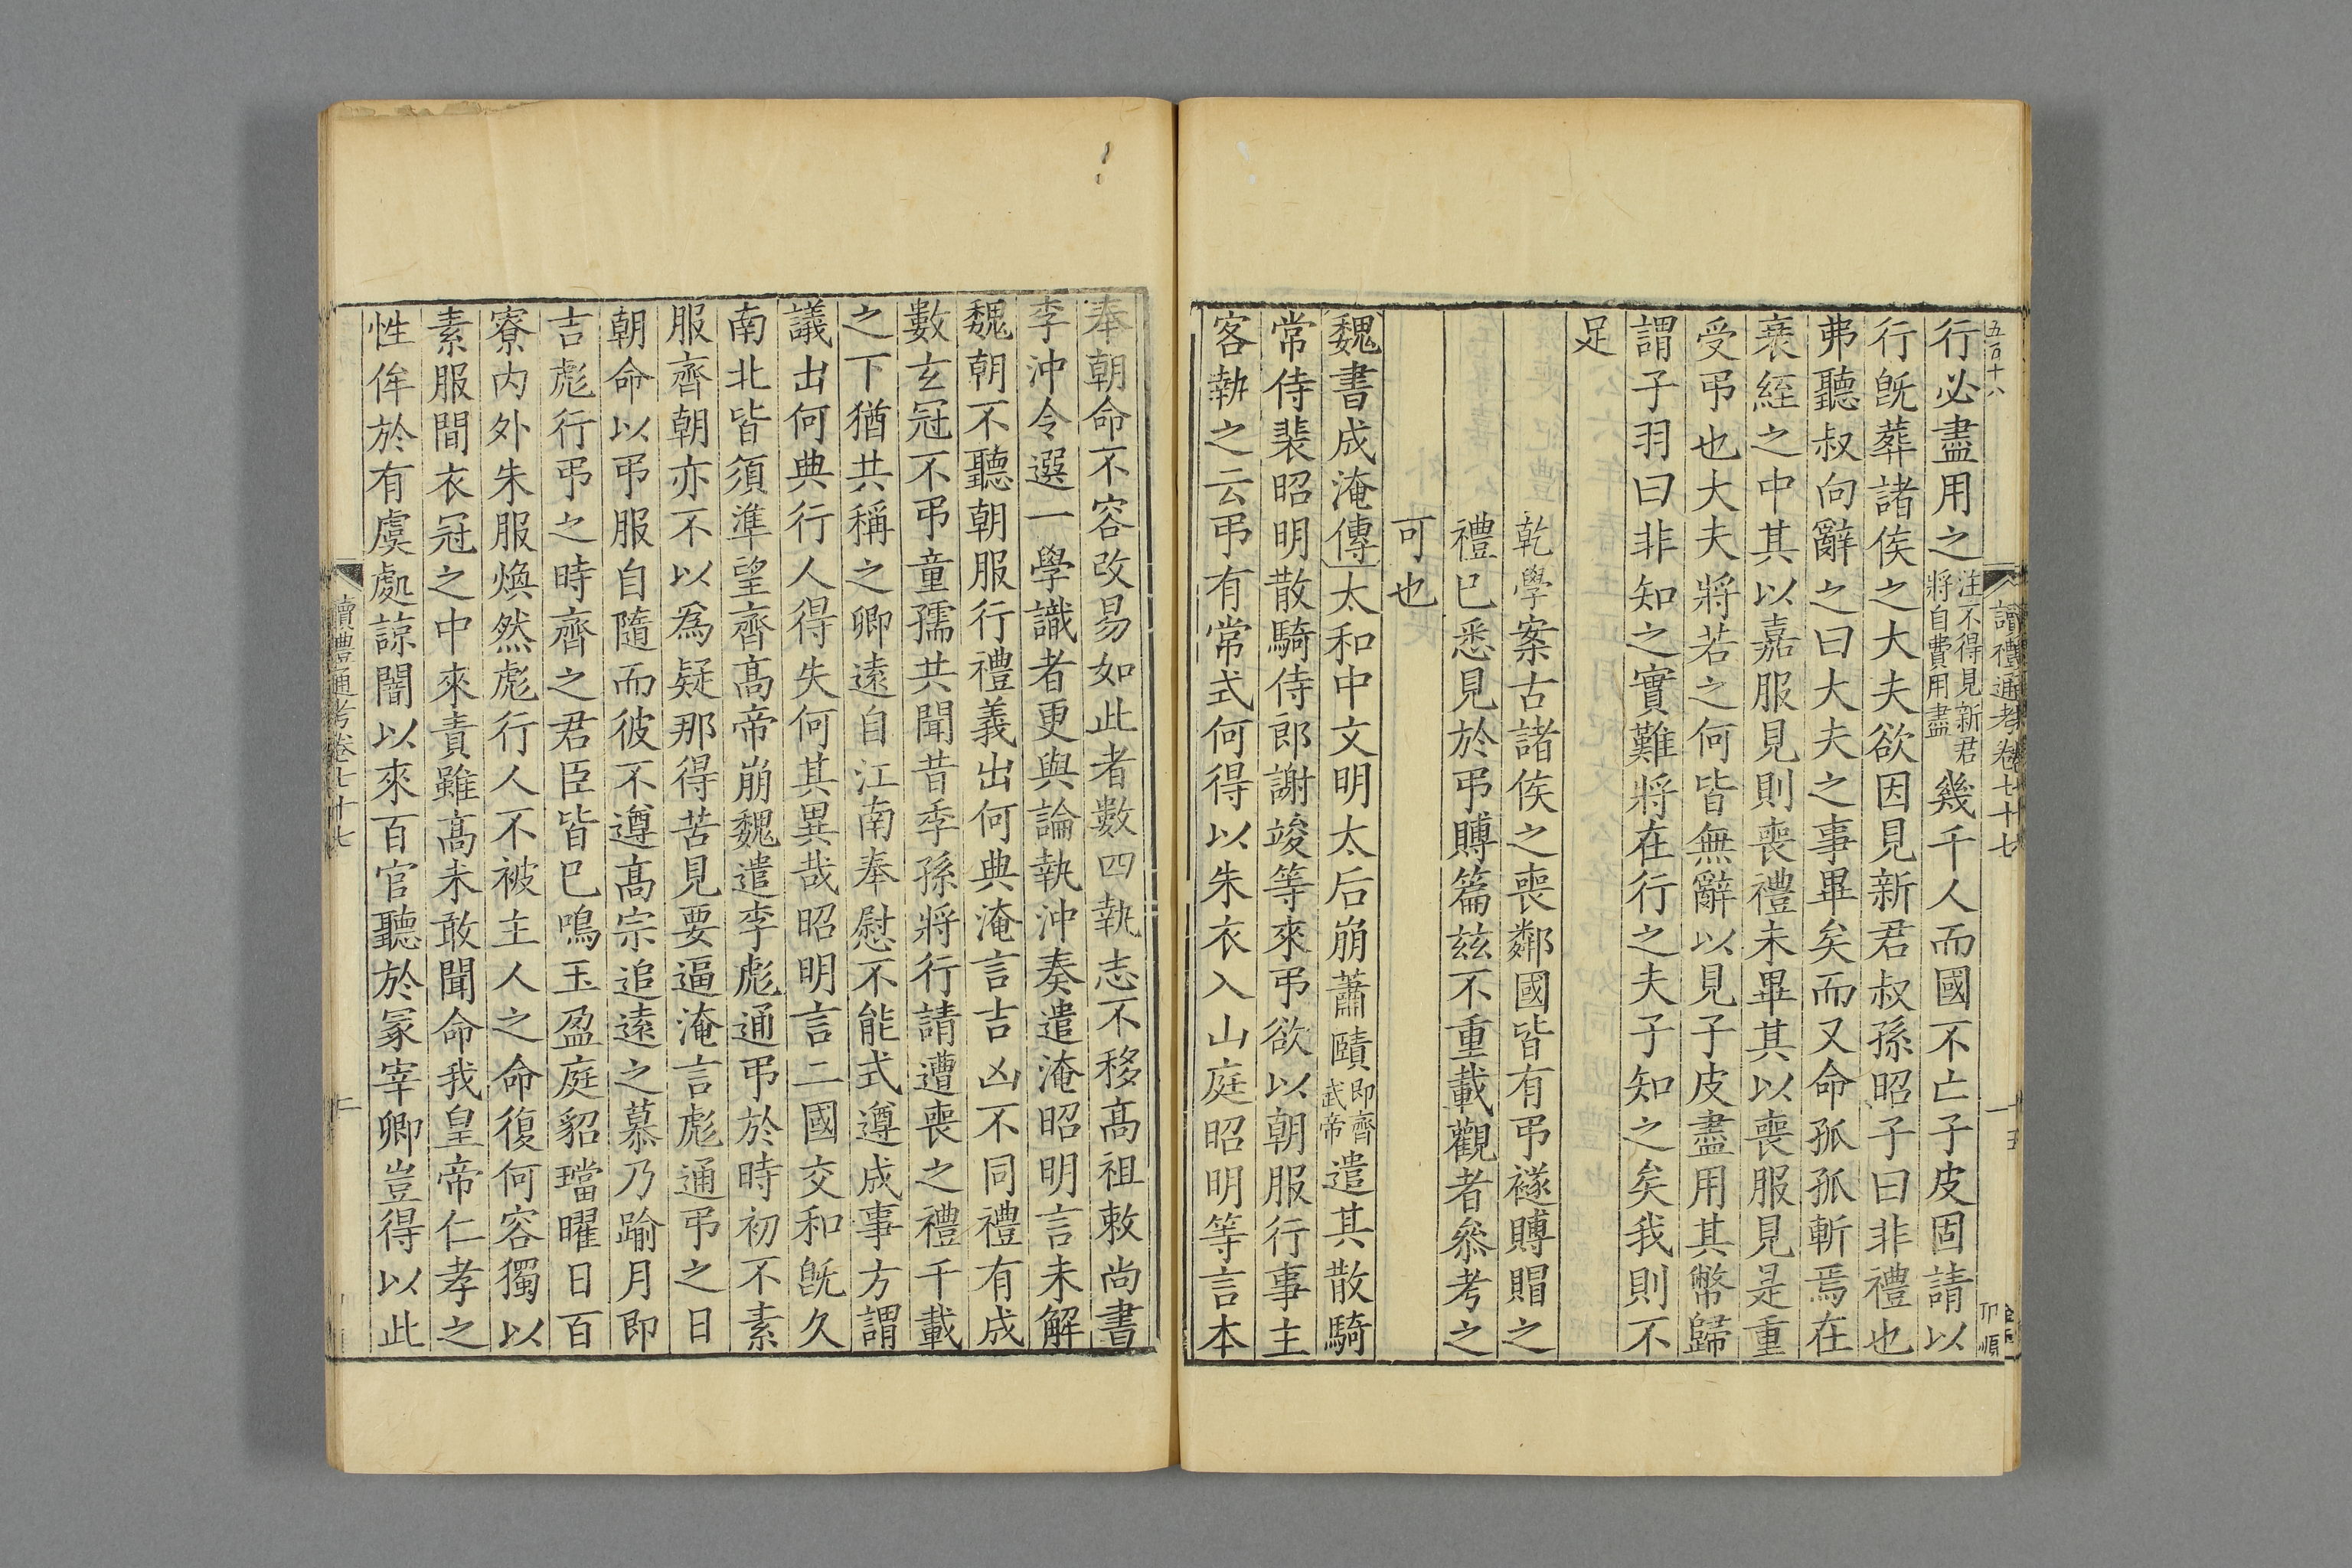 五百十八
讀禮通考卷七十七
行必盡用之注不得見新君將自費用盡幾千人而國不亡子皮固請以
行旣葬諸侯之大夫欲因見新君叔孫昭子曰非禮也
弗聽叔向辭之曰大夫之事畢矣而又命孤孤斬焉在
衰絰之中其以嘉服見則喪禮未畢其以喪服見是重
受弔也大夫將若之何皆無辭以見子皮盡用其幣歸
謂子羽曰非知之實難將在行之夫子知之矣我則不
足
乾學案古諸侯之喪鄰國皆有弔襚賻賵之
禮已悉見於弔賻篇玆不重載觀者叅考之
可也
魏書成淹傳太和中文明太后崩蕭賾卽齊武帝遣其散騎
常侍裴昭明散騎侍郎謝竣等來弔欲以朝服行事主
客執之云弔有常式何得以朱衣入山庭昭明等言本
奉朝命不容改易如此者數四執志不移高祖敕尚書
李沖令選一學識者更與論執沖奏遣淹昭明言未解
魏朝不聽朝服行禮義出何典淹言吉凶不同禮有成
數玄冠不弔童孺共聞昔季孫將行請遭喪之禮千載
之下猶共稱之卿遠自江南奉慰不能式遵成事方謂
議出何典行人得失何其異哉昭明言二國交和旣久
南北皆須準望齊高帝崩魏遣李彪通弔於時初不素
服齊朝亦不以爲疑那得苦見要逼淹言彪通弔之日
朝命以弔服自隨而彼不遵高宗追遠之慕乃踰月卽
吉彪行弔之時齊之君臣皆已鳴玉盈庭貂璫曜日百
寮內外朱服煥然彪行人不被主人之命復何容獨以
素服間衣冠之中來責雖高未敢聞命我皇帝仁孝之
性侔於有虞處諒闇以來百官聽於冢宰卿豈得以此
讀禮通考卷七十七
二